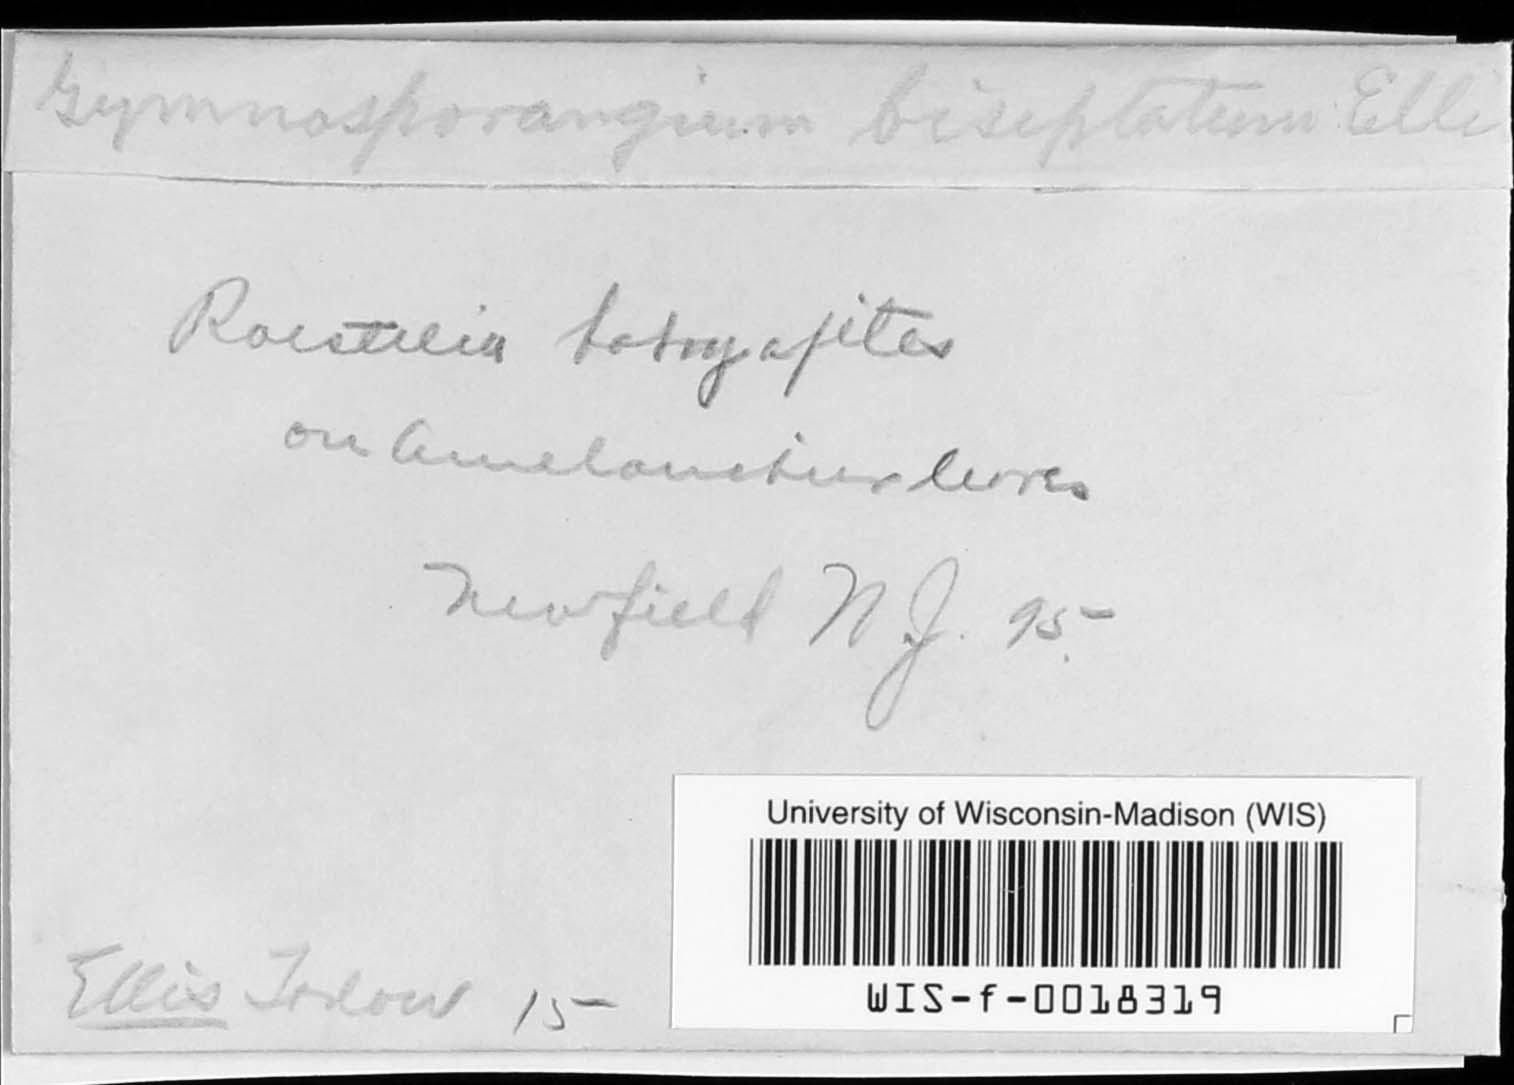 Gymnosporangium biseptatum Elli
Roestelia botryapites
on Amelanchier leves
Newfield N.J. 95
Ellis 15
University of Wisconsin-Madison (WIS)
WIS-f-0018319